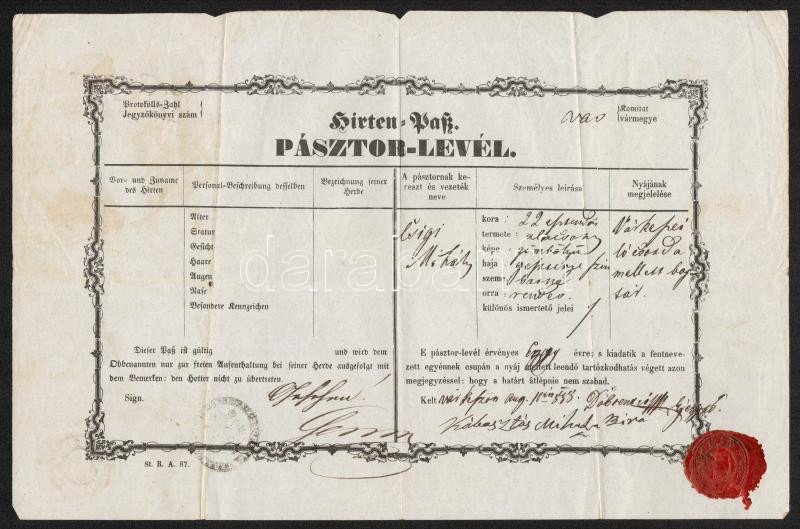 Protokolls-Zahl
Jegyzőkönyvi szám
Vas
Komitat
vármegye
Hirten-Paß.
PÁSZTOR-LEVÉL.
Vor- und Zuname des Hirten
Personal-Beschreibung desselben
Bezeichnung seiner Herde
A pásztornak kereszt és vezeték neve
Személyes leirása
Nyájának megjelelése
Alter
Statur
Gesicht
Haare
Augen
Nase
Besondere Kennzeichen
Csigi
Mihály
kora : 22 esztendős
termete : alacsony
képe gömbölyü
haja : gesztenye szin
szeme barna
orra : rendes
különös ismertető jelei
mellett boj
tár.
darabanth
Dieser Paß ist gültig und wird dem
Obbenannten nur zur freien Aufenthaltung bei seiner Herde ausgefolgt mit
dem Bemerken: den Hotter nicht zu übertreten
Sign.
E pásztor-levél érvényes Egy évre; s kiadatik a fentneve-
zett egyénnek csupán a nyáj mellett leendő tartózkodhatás végett azon
megjegyzéssel: hogy a határt átlépnie nem szabad.
Kelt aug.
Mihály Biró
St. R. A. 87.